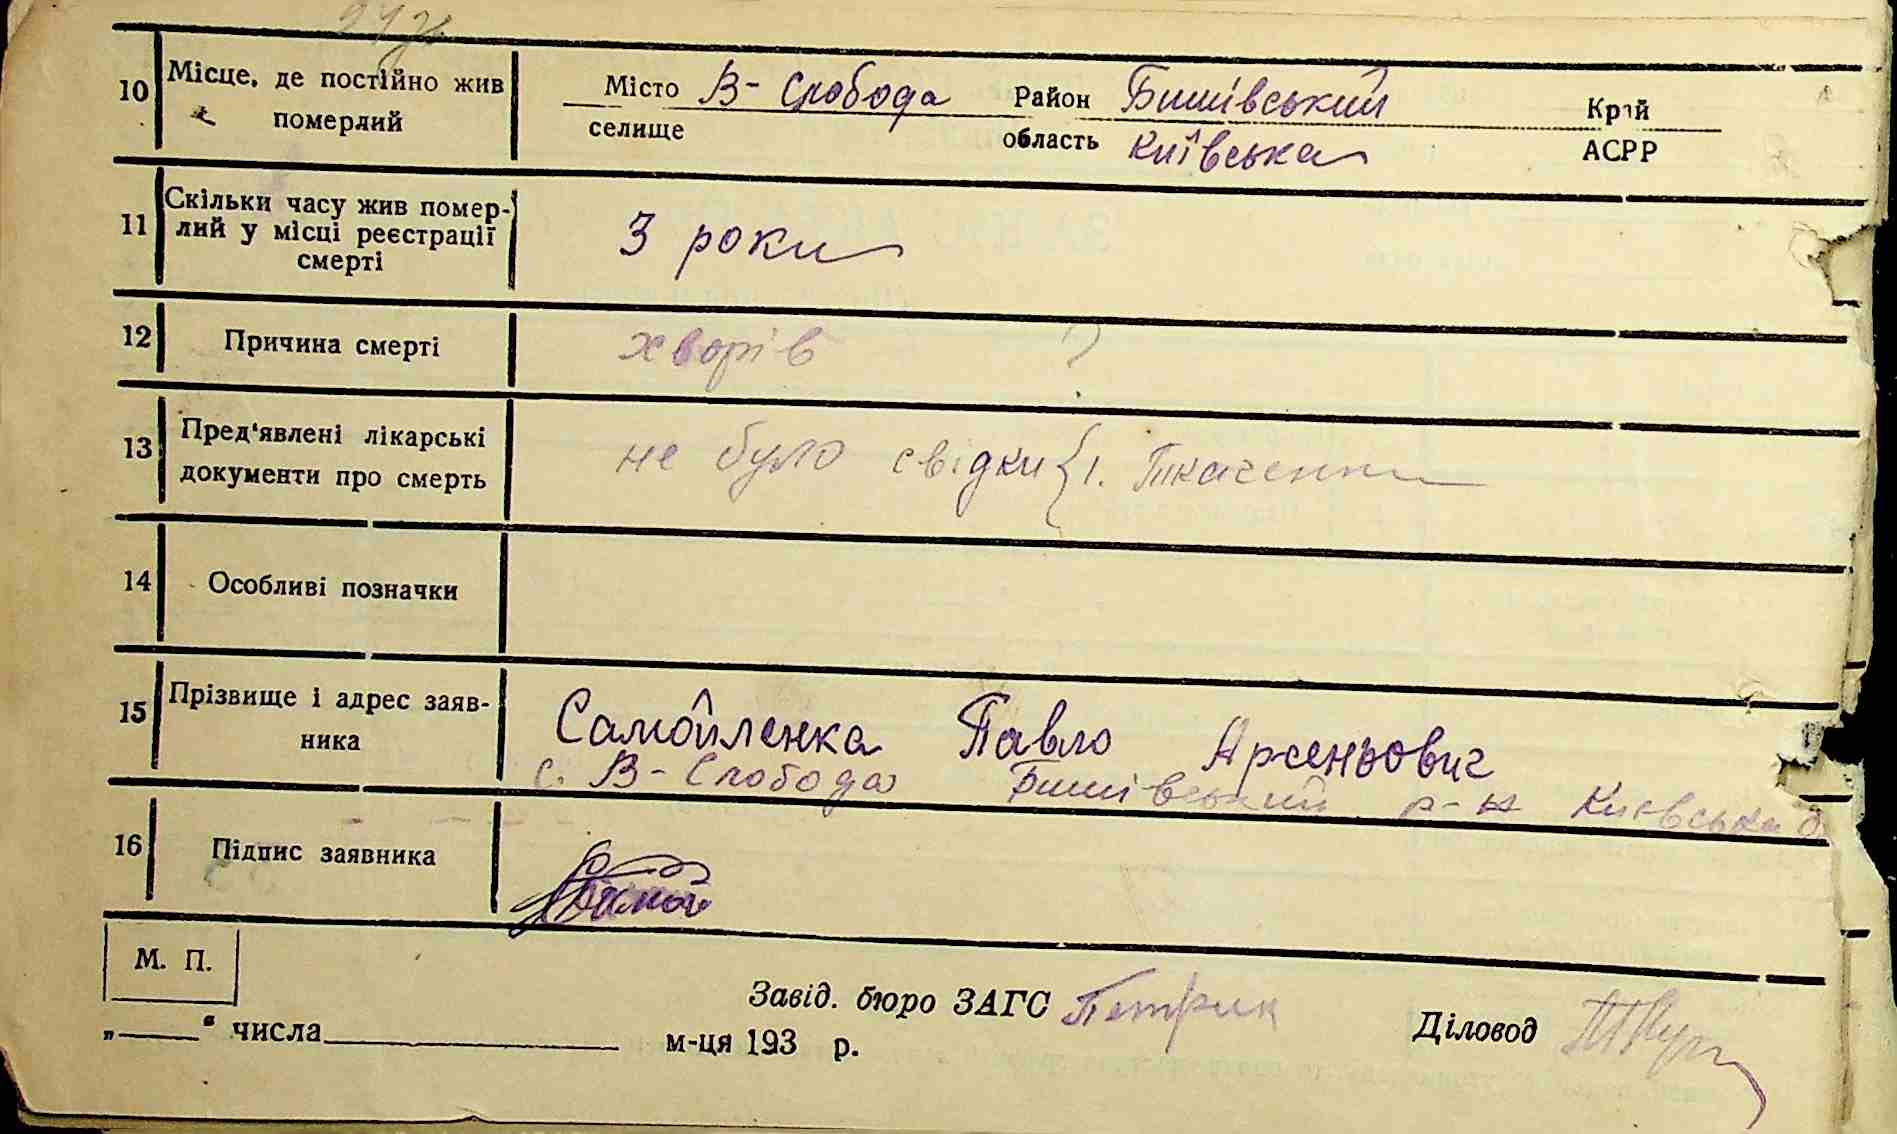 10 Місце, де постійно жив
померлий
Місто В- Слобода Район Бишівський Край
селище область Київська АСРР
11 Скільки часу жив помер-
лий у місці реєстрації
смерті
3 роки
12 Причина смерті хворів ?
13 Пред'явлені лікарські
документи про смерть
не було свідки { 1. Ткаченко
14 Особливі позначки
15 Прізвище і адрес заяв-
ника
Самойленка Павло Арсеньович
с. В- Слобода Бишівський р-н Киевська
16 Підпис заявника
М. П.
Завід. бюро ЗАГС Петрик Діловод
„ “ числа м-ця 193 р.